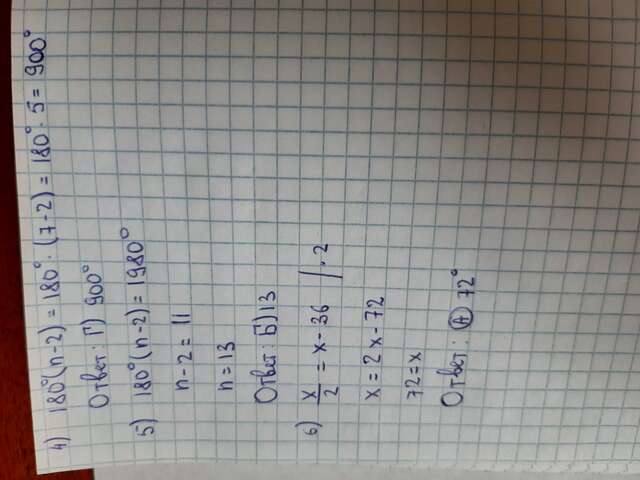 4) 180°(n-2) = 180° · (7-2) = 180° · 5 = 900°
Ответ: Г) 900°
5) 180°(n-2) = 1980°
n-2 = 11
n = 13
Ответ: Б) 13
6) x/2 = x - 36 | · 2
x = 2x - 72
72 = x
Ответ: А) 72°